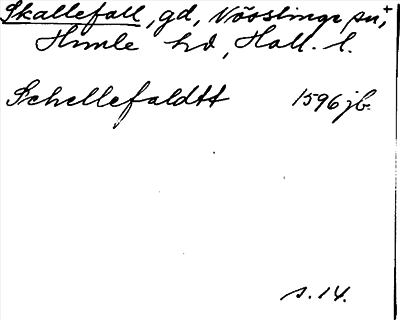 Skallefall, gd, Nösslinge sn, +
Himle hd, Hall. l.
Schellefaldtt 1596 jb.
s. 14.